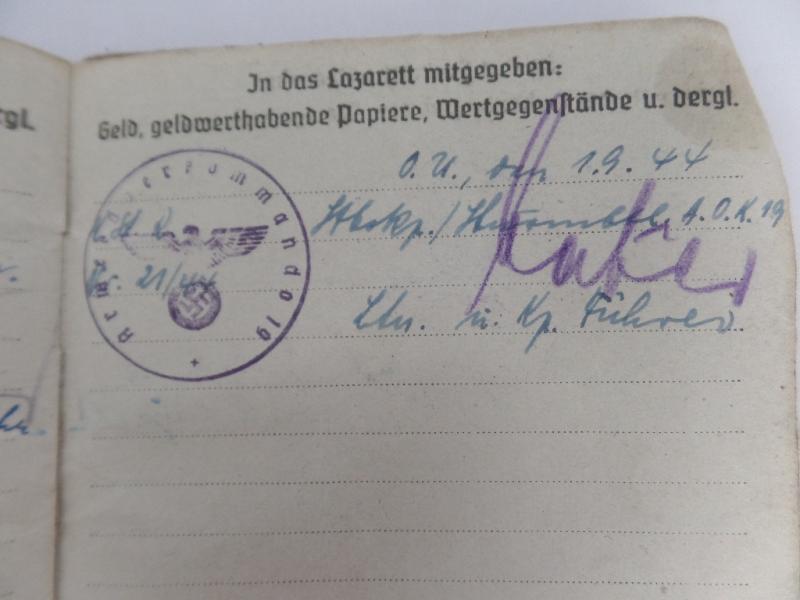 rgl.
In das Lazarett mitgegeben:
Geld, geldwerthabende Papiere, Wertgegenstände u. dergl.
O.U., den 1.9.44
Stbskp./Sturmbtl. A.O.K. 19
Nr. 21/44
Ltn. u. Kp. Führer
Armeeoberkommando 19